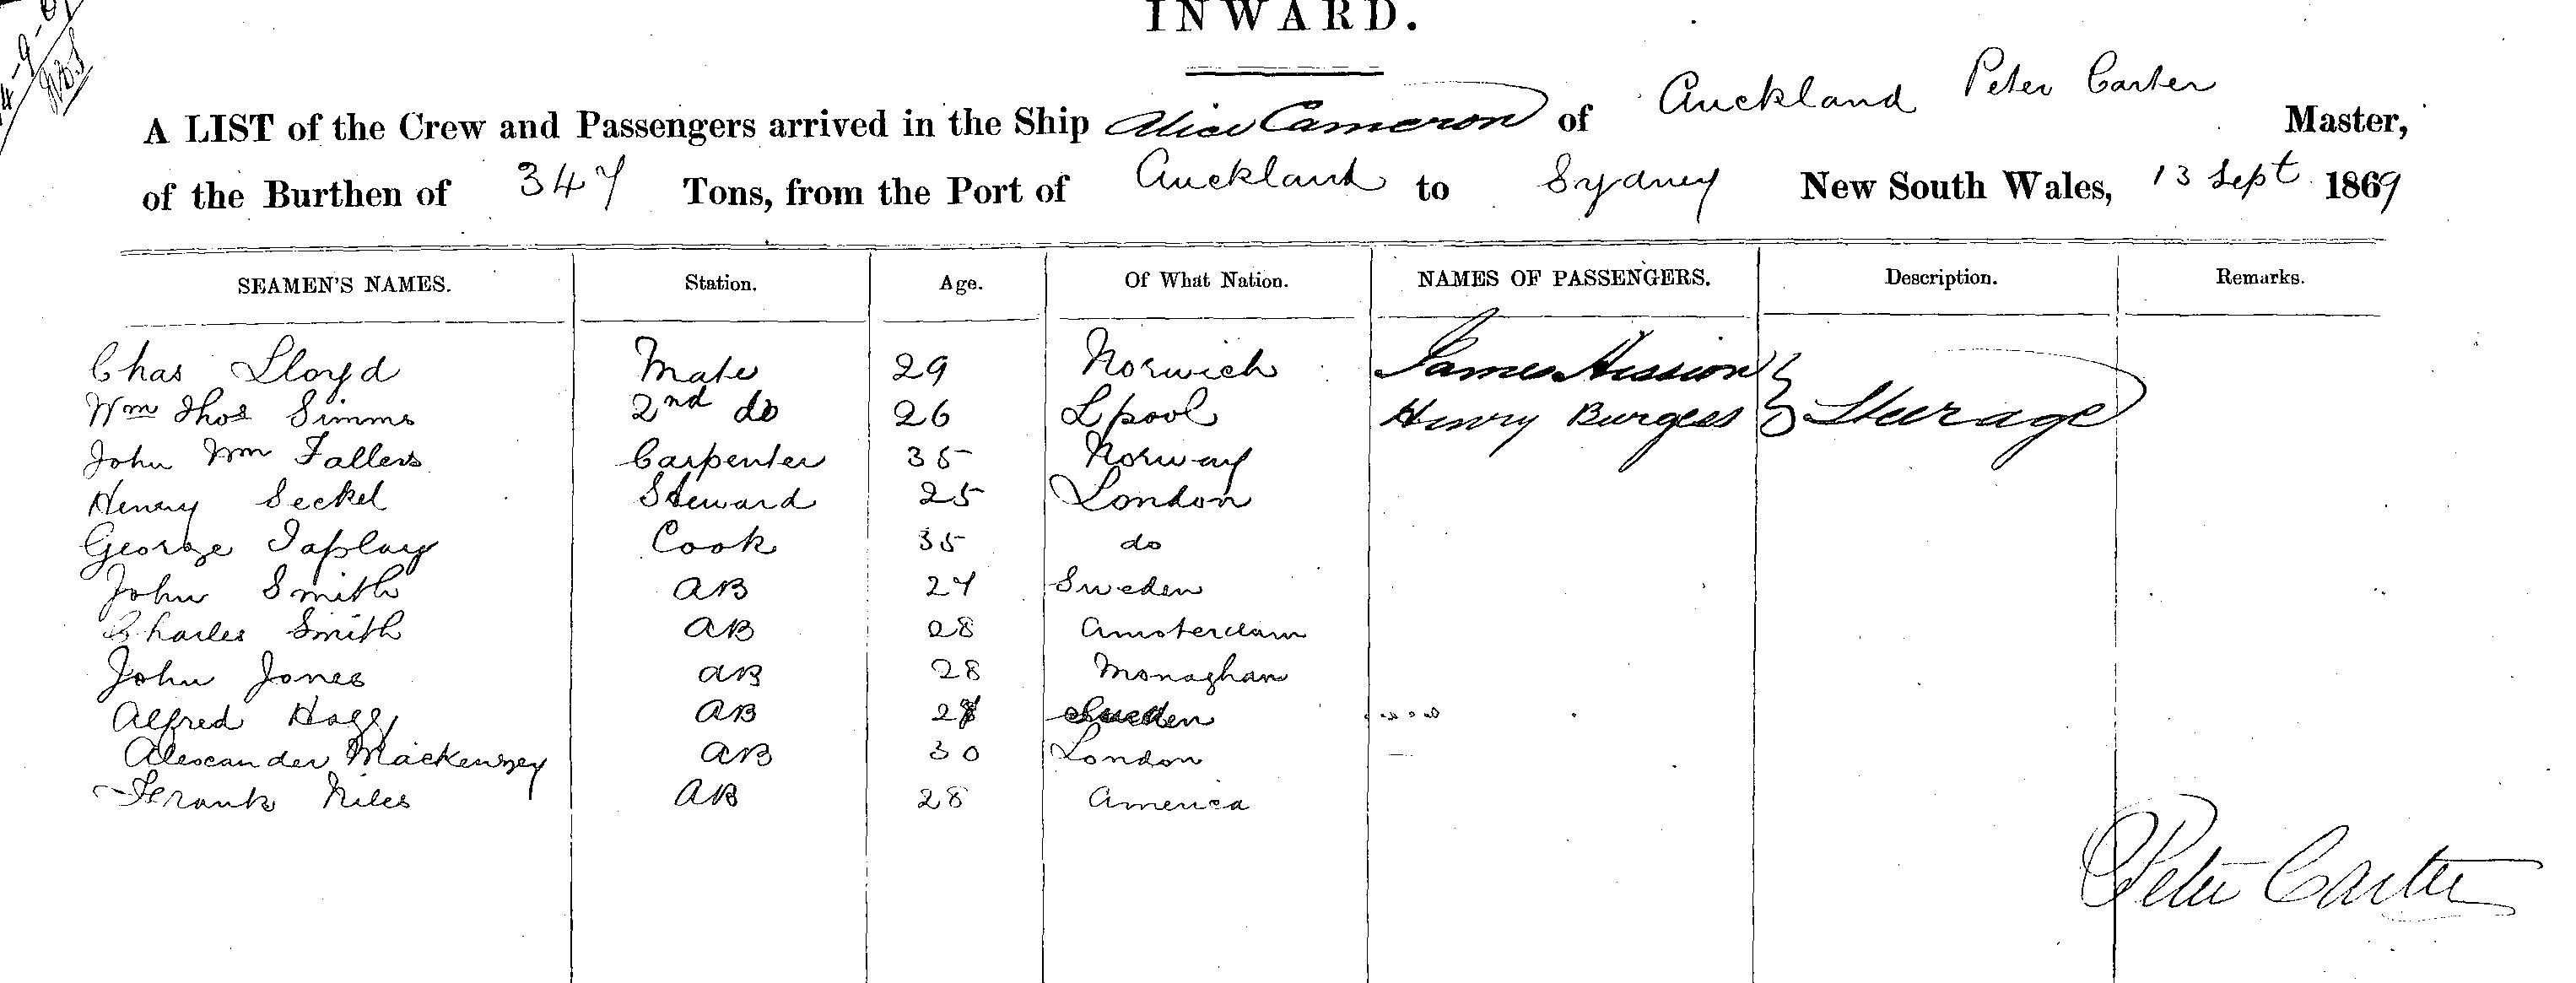 INWARD.
A LIST of the Crew and Passengers arrived in the Ship Alice Cameron of Auckland Peter Carter Master,
of the Burthen of 347 Tons, from the Port of Auckland to Sydney New South Wales, 13 Sept 1869
SEAMEN'S NAMES. Station. Age. Of What Nation. NAMES OF PASSENGERS. Description. Remarks.
Chas Lloyd Mate 29 Norwich James Hission
Wm Thos Simms 2nd do 26 Lpool Henry Burgess Steerage
John Wm Fallers 35 Carpenter Norway
Henry Seckel Steward 25 London
George Taplay Cook 35 do
John Smith AB 27 Sweden
Charles Smith AB 28 Amsterdam
John Jones AB 28 Monaghan
Alfred Hagg AB Sweden
Alexander Mackenzey AB 30 London
Frank Niles AB 28 America
Peter Carter